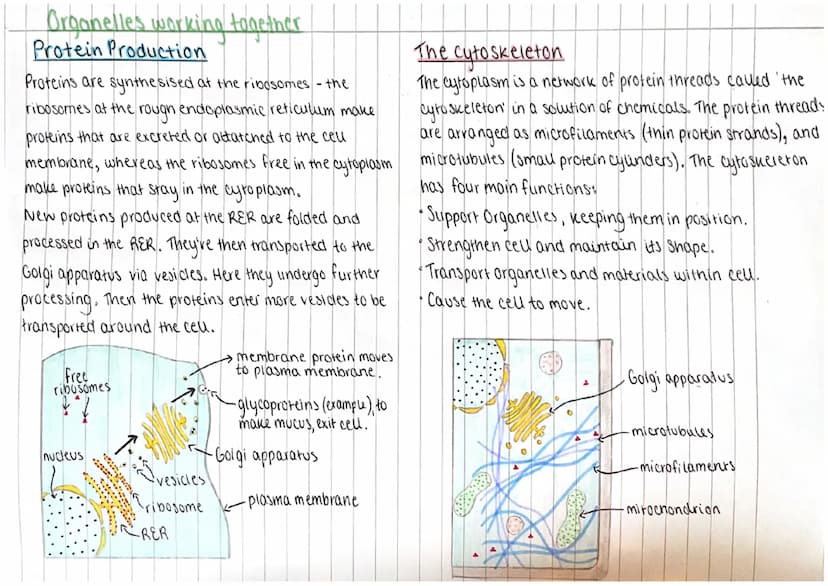 Organelles working together
Protein Production
Proteins are synthesised at the ribosomes - the
ribosomes at the rough endoplasmic reticulum make
proteins that are excreted or attatched to the cell
membrane, whereas the ribosomes free in the cytoplasm
make proteins that stay in the cytoplasm.
New proteins produced at the RER are folded and
processed in the RER. They're then transported to the
Golgi apparatus via vesicles. Here they undergo further
processing. Then the proteins enter more vesicles to be
transported around the cell.
free
ribosomes
nucleus
membrane protein moves
to plasma membrane.
glycoproteins (example), to
make mucus, exit cell.
Golgi apparatus
vesicles
ribosome
plasma membrane
RER
The cytoskeleton
The cytoplasm is a network of protein threads called 'the
cytoskeleton' in a solution of chemicals. The protein threads
are arranged as microfilaments (thin protein strands), and
microtubules (small protein cylinders). The cytoskeleton
has four main functions:
• Support Organelles, keeping them in position.
• Strengthen cell and maintain its shape.
• Transport organelles and materials within cell.
• Cause the cell to move.
Golgi apparatus
microtubules
microfilaments
mitochondrion